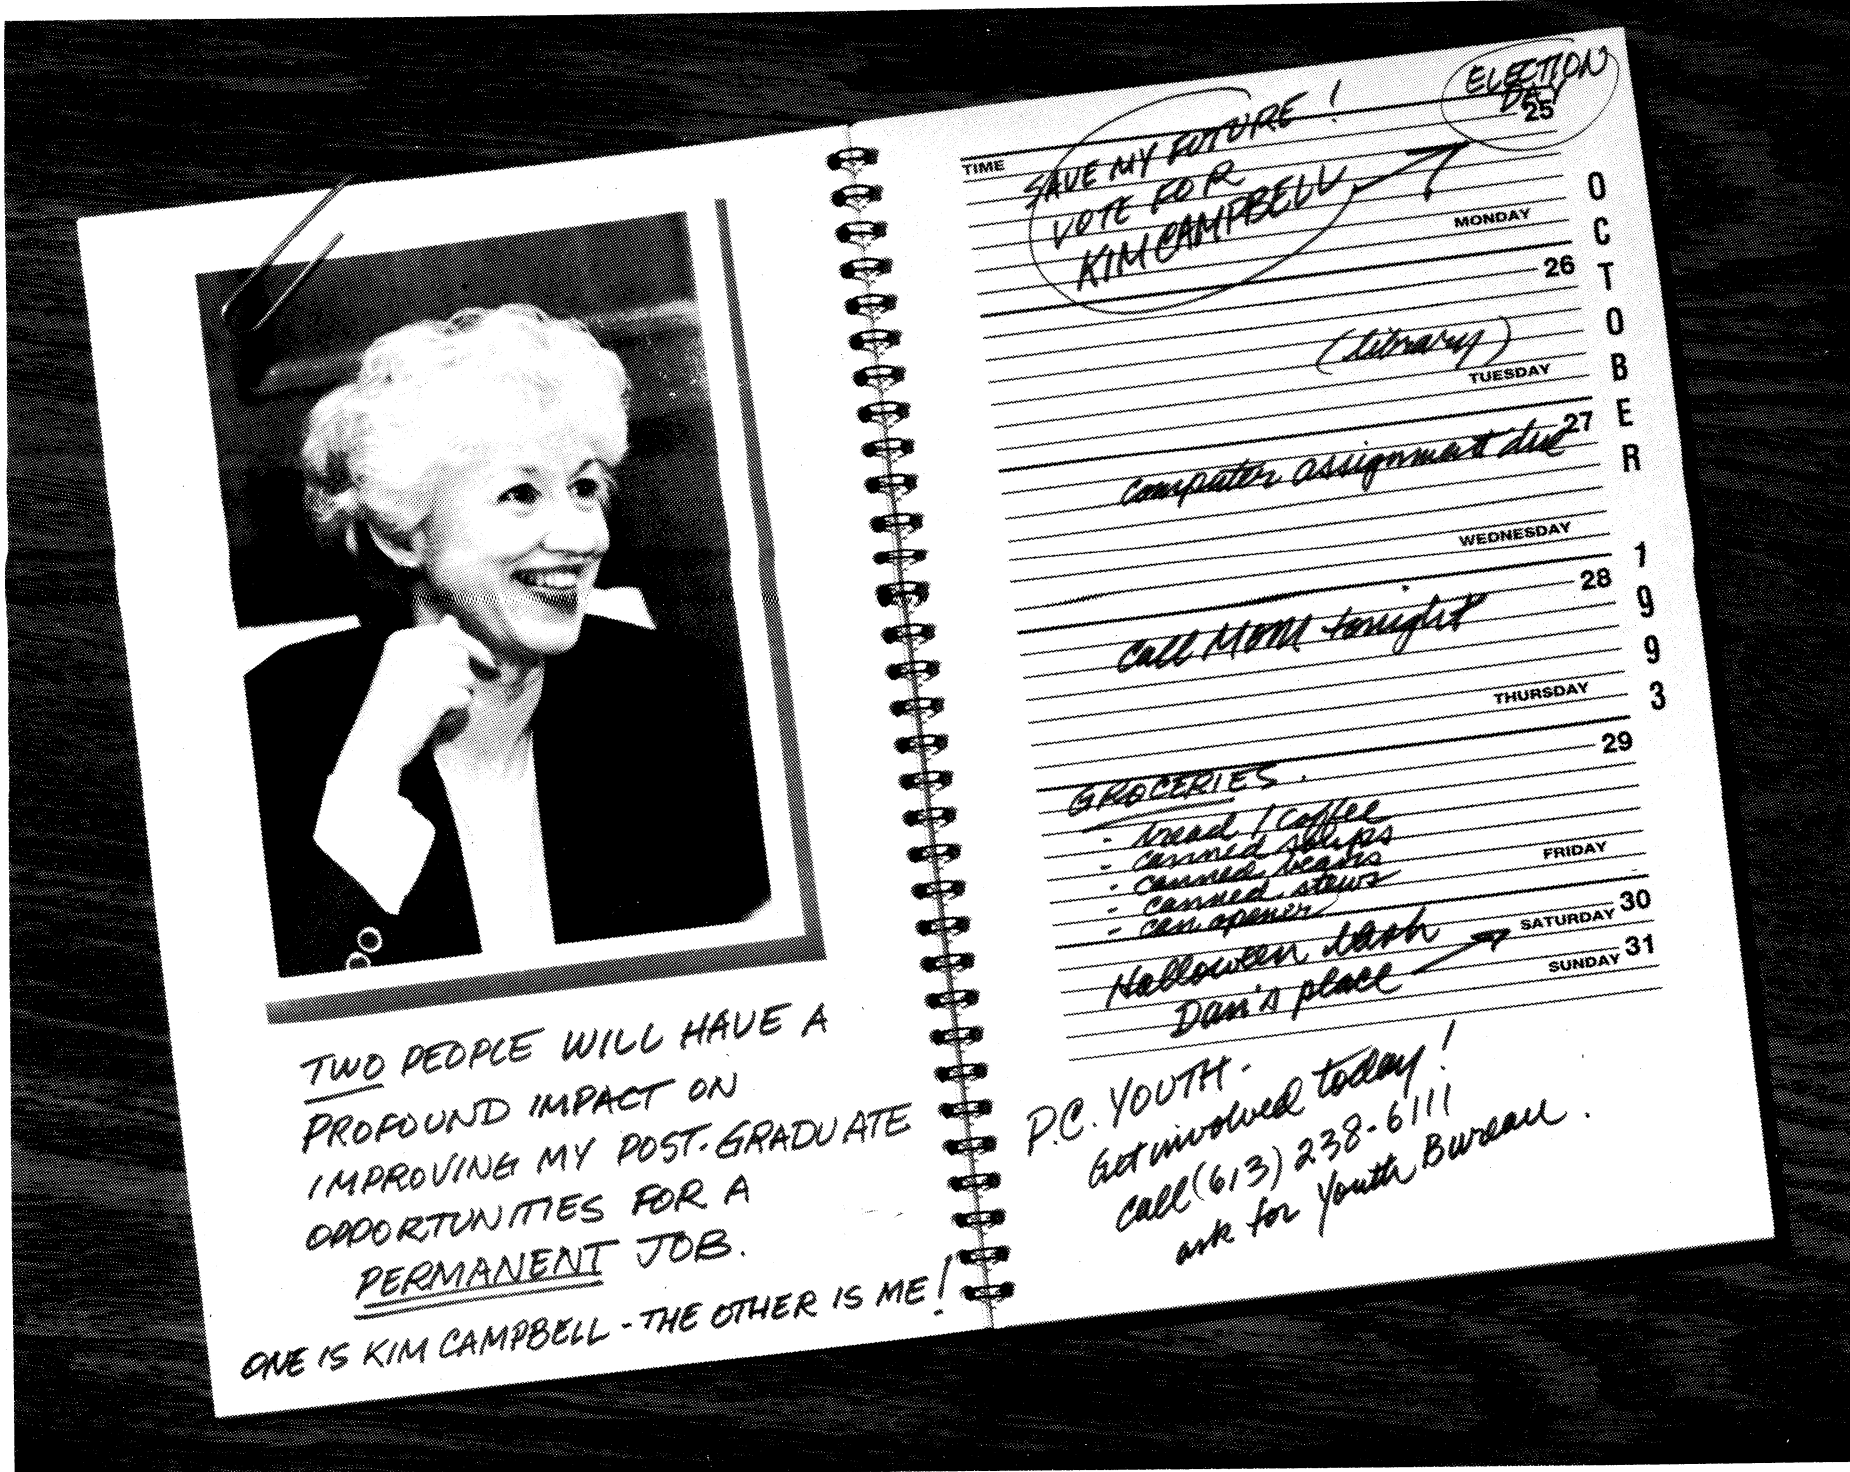 TWO PEOPLE WILL HAVE A
PROFOUND IMPACT ON
IMPROVING MY POST-GRADUATE
OPPORTUNITIES FOR A
PERMANENT JOB.
ONE IS KIM CAMPBELL - THE OTHER IS ME!
ELECTION
DAY
25
TIME
SAVE MY FUTURE!
VOTE FOR
KIM CAMPBELL
MONDAY
26
(library)
TUESDAY
27
computer assignment due
WEDNESDAY
28
call MOM tonight
THURSDAY
29
GROCERIES.
- bread / coffee
- canned soups
- canned beans
- canned stews
- can opener
FRIDAY
30
SATURDAY
Halloween bash
Dan's place
31
SUNDAY
OCTOBER 1993
P.C. YOUTH.
Get involved today!
call (613) 238-6111
ask for Youth Bureau.